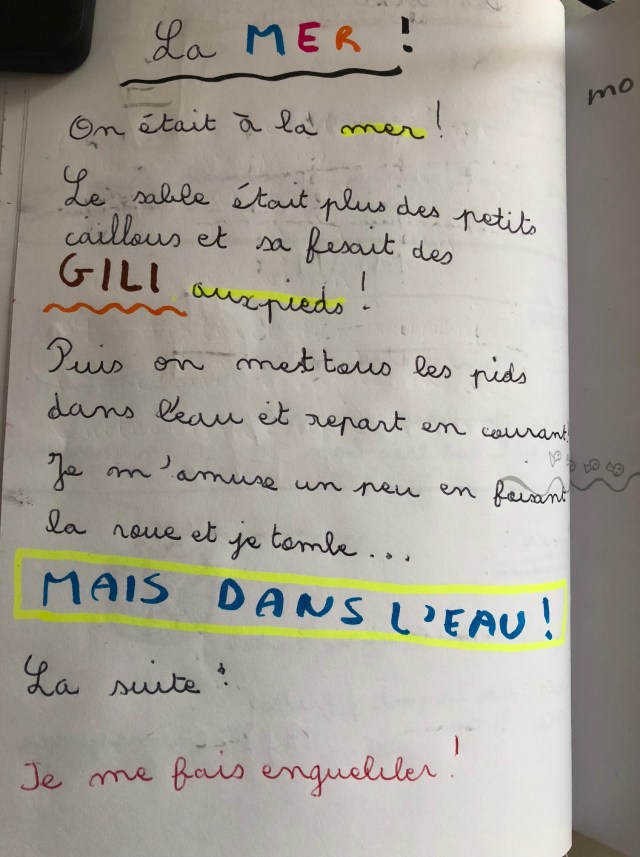 La MER !
On était à la mer !
Le sable était plus des petits
caillous et sa fesait des
GILI aux pieds !
Puis on met tous les pids
dans l'eau et repart en courant.
Je m'amuse un peu en faisant
la roue et je tombe...
MAIS DANS L'EAU !
La suite :
Je me fais engueliler !
mo